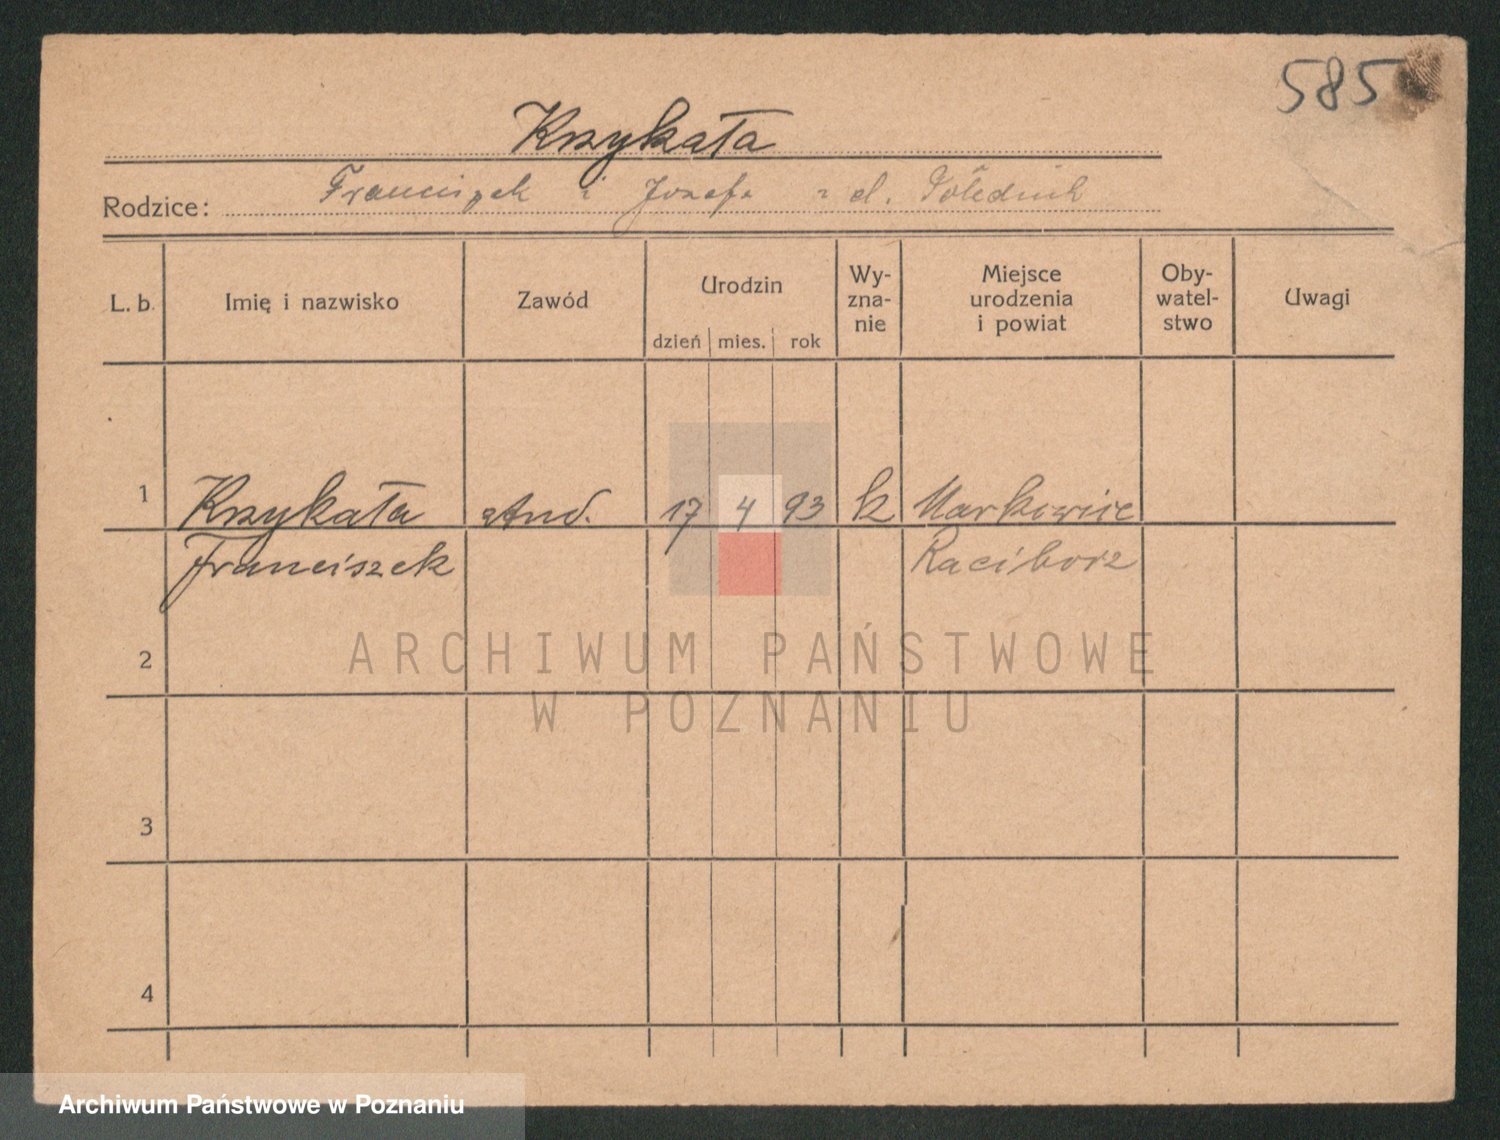 585
Krzykała
Rodzice: Franciszek i Józefa z d.
L. b. Imię i nazwisko Zawód Urodzin dzień mies. rok Wy-zna-nie Miejsce urodzenia i powiat Oby-watel-stwo Uwagi
1 Krzykała stud. 17 4 93 k Markowice
Franciszek Racibórz
2
3
4
ARCHIWUM PAŃSTWOWE
W POZNANIU
Archiwum Państwowe w Poznaniu